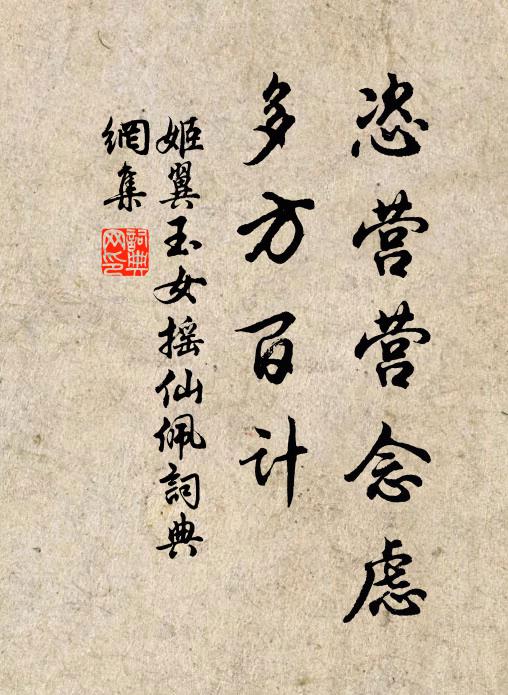 恣营营念虑
多方百计
姬翼玉女摇仙佩詞典
網集
詞典网印